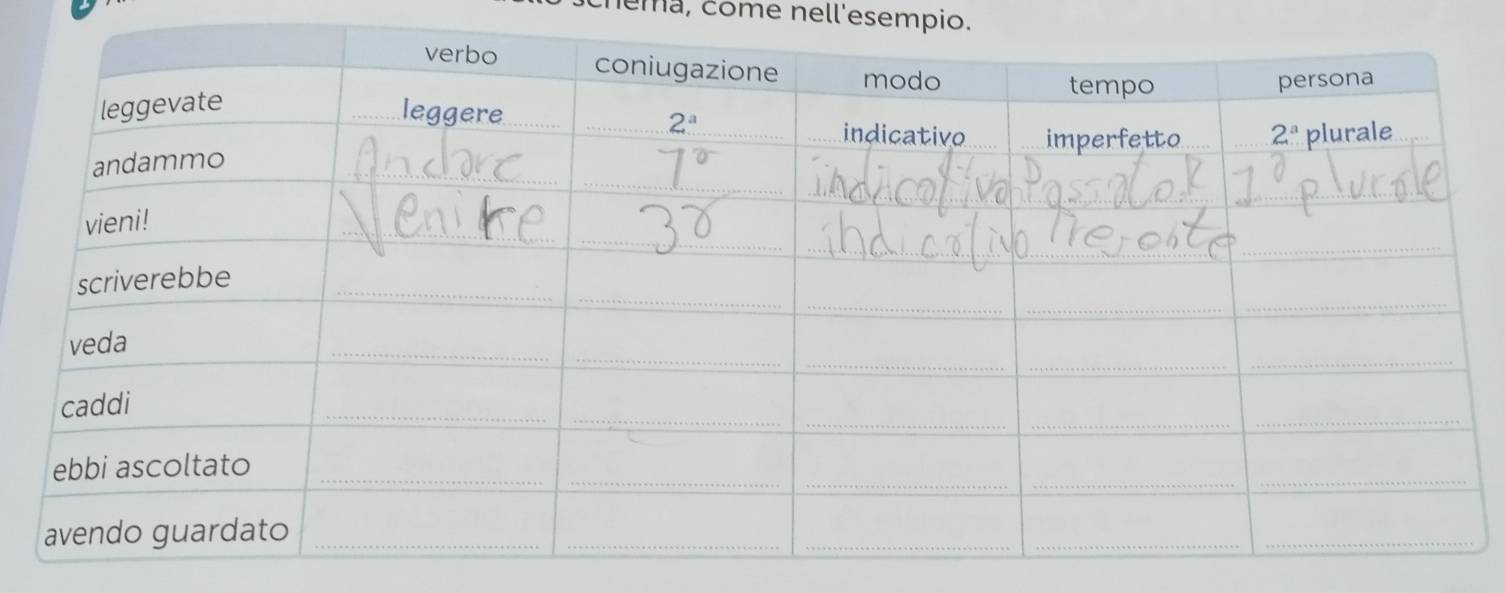 schema, come nell'esempio.
verbo coniugazione modo tempo persona
leggevate leggere 2ª indicativo imperfetto 2ª plurale
andammo Andare 1ª indicativo Passato R 1ª plurale
vieni! Venire 3ª indicativo Presente
scriverebbe
veda
caddi
ebbi ascoltato
avendo guardato